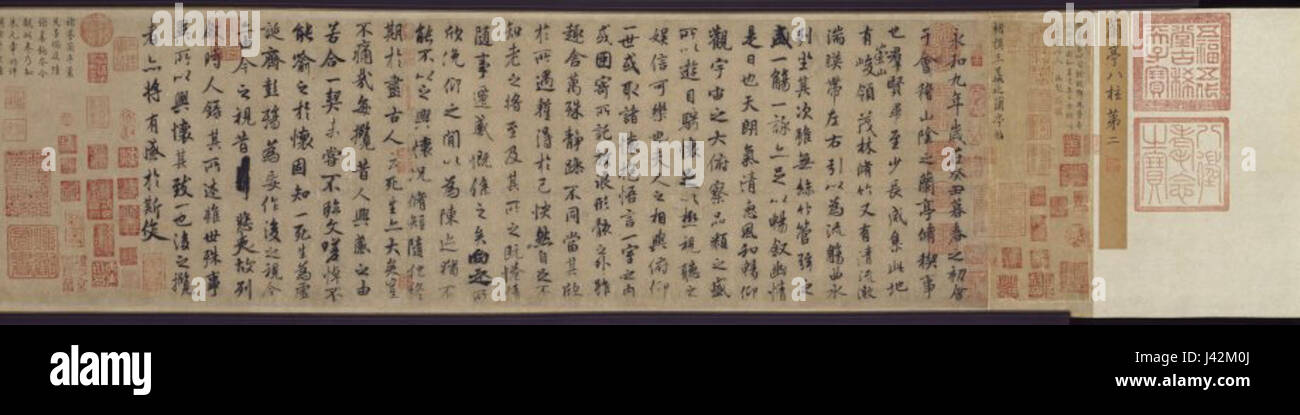 五福五代堂古稀天子寶
八徵耄念之寶
蘭亭八柱第二
褚模王羲之蘭亭帖
永和九年歲在癸丑暮春之初會
于會稽山陰之蘭亭脩禊事
也羣賢畢至少長咸集此地
有崇山峻領茂林脩竹又有清流激
湍暎帶左右引以為流觴曲水
列坐其次雖無絲竹管弦之
盛一觴一詠亦足以暢敘幽情
是日也天朗氣清惠風和暢仰
觀宇宙之大俯察品類之盛
所以遊目騁懷足以極視聽之
娛信可樂也夫人之相與俯仰
一世或取諸懷抱悟言一室之內
或因寄所託放浪形骸之外雖
趣舍萬殊靜躁不同當其欣
於所遇蹔得於己快然自足不
知老之將至及其所之既惓情
隨事遷感慨係之矣向之所
欣俛仰之間以為陳迹猶不
能不以之興懷況脩短隨化終
期於盡古人云死生亦大矣豈
不痛哉每攬昔人興感之由
若合一契未嘗不臨文嗟悼不
能喻之於懷固知一死生為虛
誕齊彭殤為妄作後之視今
亦由今之視昔悲夫故列
敘時人錄其所述雖世殊事
異所以興懷其致一也後之攬
者亦將有感於斯文
alamy
J42M0J